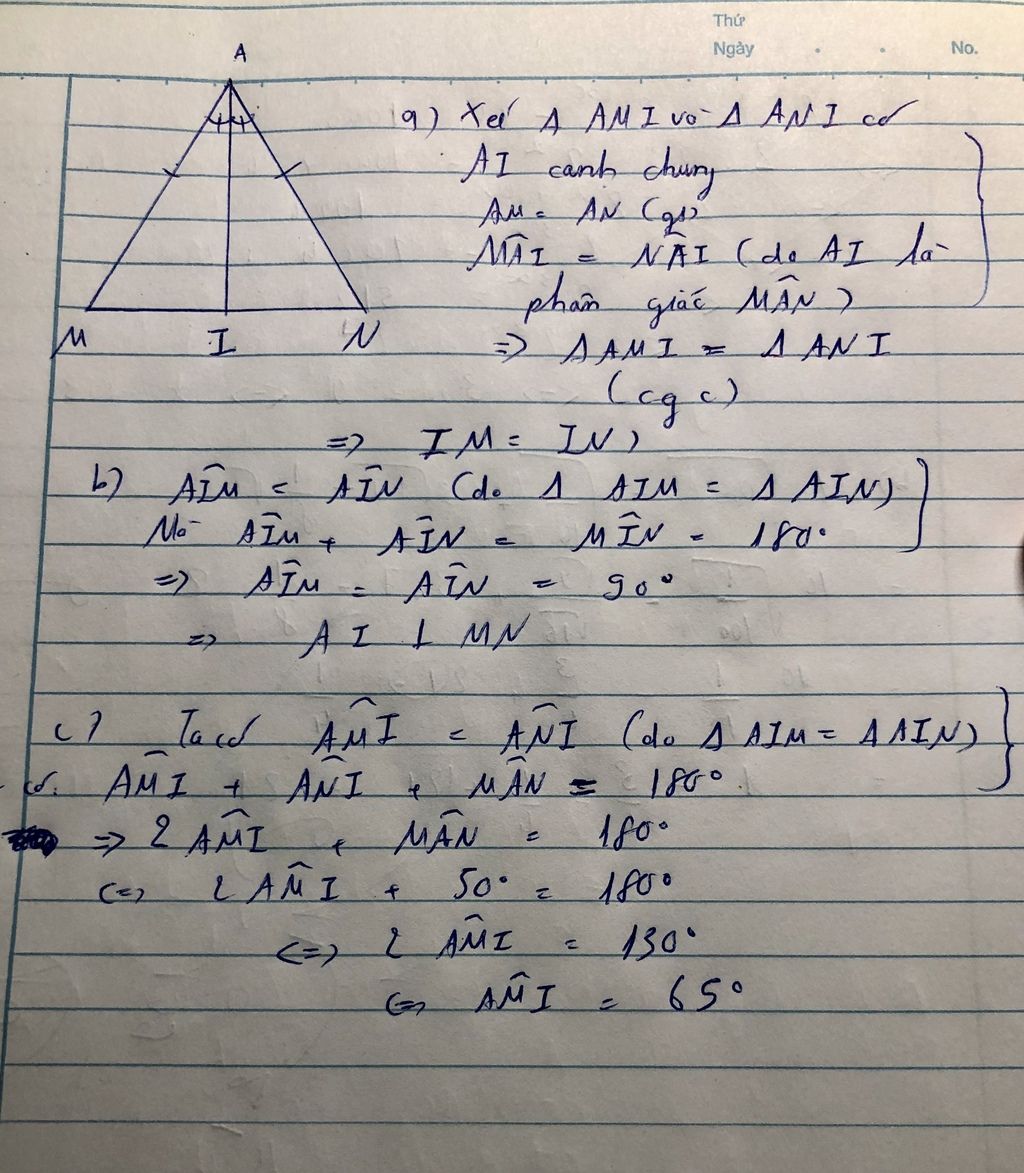 Thứ
Ngày . . No.
A
M I N
a) Xet Δ AMI và Δ ANI có
AI canh chung
AM = AN (gt)
MÂI = NÂI (do AI là
phân giác MÂN)
=> Δ AMI = Δ ANI
(cgc)
=> IM = IN)
b) AÎM = AÎN (do Δ AIM = Δ AIN)
Mà AÎM + AÎN = MÎN = 180°
=> AÎM = AÎN = 90°
=> AI ⊥ MN
c) Ta có AM̂I = AN̂I (do Δ AIM = Δ AIN)
có. AM̂I + AN̂I + MÂN = 180°
=> 2 AM̂I + MÂN = 180°
<=> 2 AM̂I + 50° = 180°
<=> 2 AM̂I = 130°
<=> AM̂I = 65°